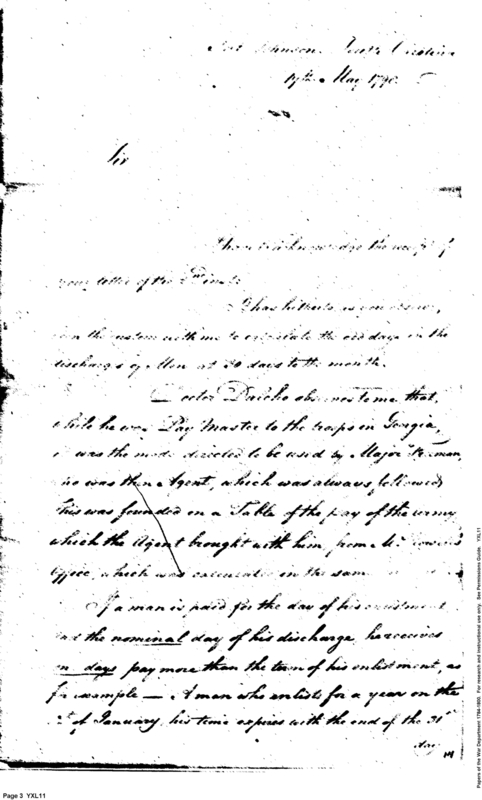 Fort Johnson South Carolina
19th May 1790.
Sir
I have to acknowledge the receipt of
your letter of the 2nd inst.
It has hitherto as you observe,
been the custom with me to calculate the odd days in the
discharges of Men at 30 days to the month.
Doctor Dalcho observes to me that,
while he was Pay Master to the troops in Georgia,
it was the mode directed to be used by Major
who was then Agent, which was always followed
This was founded on a Table of the pay of the army
which the Agent brought with him from Mr.
office, which was calculated in the same
If a man is paid for the day of his enlistment
and the nominal day of his discharge, he receives
one days pay more than the term of his enlistment, as
for example — A man who enlists for a year on the
1st of January, his time expires with the end of the 31st
day
Page 3 YXL11
Papers of the War Department 1784-1800. For research and instructional use only. See Permissions Guide. YXL11